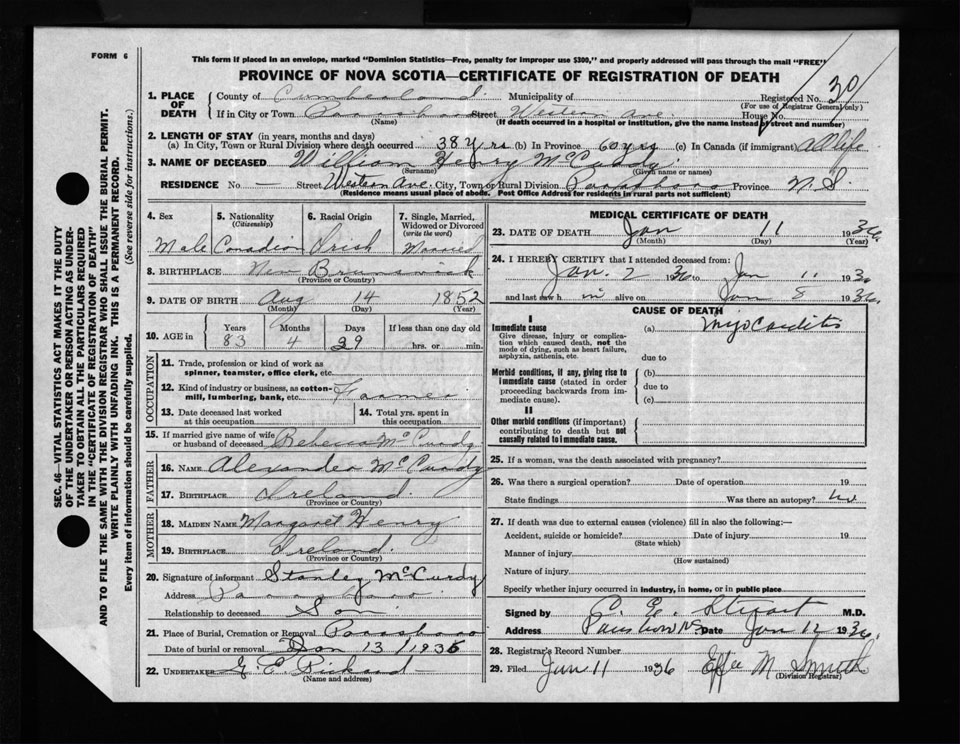 FORM 6
This form if placed in an envelope, marked "Dominion Statistics—Free, penalty for improper use $300," and properly addressed will pass through the mail "FREE"
PROVINCE OF NOVA SCOTIA—CERTIFICATE OF REGISTRATION OF DEATH
SEC. 46—VITAL STATISTICS ACT MAKES IT THE DUTY
OF THE UNDERTAKER OR PERSON ACTING AS UNDER-
TAKER TO OBTAIN ALL THE PARTICULARS REQUIRED
IN THE "CERTIFICATE OF REGISTRATION OF DEATH"
AND TO FILE THE SAME WITH THE DIVISION REGISTRAR WHO SHALL ISSUE THE BURIAL PERMIT.
WRITE PLAINLY WITH UNFADING INK. THIS IS A PERMANENT RECORD.
Every item of information should be carefully supplied. (See reverse side for instructions.)
1. PLACE OF DEATH County of Cumberland Municipality of Registered No. 30
(For use of Registrar General only)
If in City or Town Parrsboro Street Western Ave. House No.
(Name) (If death occurred in a hospital or institution, give the name instead of street and number)
2. LENGTH OF STAY (in years, months and days)
(a) In City, Town or Rural Division where death occurred 38 yrs (b) In Province 60 yrs (c) In Canada (if immigrant) all life
3. NAME OF DECEASED William Henry McCurdy
(Surname) (Given name or names)
RESIDENCE No — Street Western Ave. City, Town or Rural Division Parrsboro Province N. S.
(Residence means usual place of abode. Post Office Address for residents in rural parts not sufficient)
4. Sex 5. Nationality (Citizenship) 6. Racial Origin 7. Single, Married, Widowed or Divorced (write the word)
Male Canadian Irish Married
8. BIRTHPLACE New Brunswick
(Province or Country)
9. DATE OF BIRTH Aug 14 1852
(Month) (Day) (Year)
10. AGE in Years Months Days If less than one day old
83 4 29 hrs. or min.
OCCUPATION
11. Trade, profession or kind of work as
spinner, teamster, office clerk, etc.
12. Kind of industry or business, as cotton-
mill, lumbering, bank, etc. Farmer
13. Date deceased last worked
at this occupation
14. Total yrs. spent in
this occupation
15. If married give name of wife
or husband of deceased Rebecca McCurdy
FATHER
16. NAME Alexander McCurdy
17. BIRTHPLACE Ireland
(Province or Country)
MOTHER
18. MAIDEN NAME Margaret Henry
19. BIRTHPLACE Ireland
(Province or Country)
20. Signature of informant Stanley McCurdy
Address Parrsboro
Relationship to deceased Son
21. Place of Burial, Cremation or Removal Parrsboro
Date of burial or removal Jan 13/1936
22. UNDERTAKER G. E. Rickard
(Name and address)
MEDICAL CERTIFICATE OF DEATH
23. DATE OF DEATH Jan 11 1936
(Month) (Day) (Year)
24. I HEREBY CERTIFY that I attended deceased from:
Jan. 2 1936 to Jan 11 1936
and last saw h im alive on Jan 8 1936
CAUSE OF DEATH
I
Immediate cause (a) Myocarditis
Give disease, injury or complica-
tion which caused death, not the
mode of dying, such as heart failure,
asphyxia, asthenia, etc. due to
Morbid conditions, if any, giving rise to (b)
immediate cause (stated in order due to
proceeding backwards from im-
mediate cause). (c)
II
Other morbid conditions (if important)
contributing to death but not
causally related to immediate cause.
25. If a woman, was the death associated with pregnancy?
26. Was there a surgical operation? Date of operation 19
State findings Was there an autopsy? No
27. If death was due to external causes (violence) fill in also the following:—
Accident, suicide or homicide? Date of injury 19
(State which)
Manner of injury
(How sustained)
Nature of injury
Specify whether injury occurred in industry, in home, or in public place
Signed by C. E. Stuart M.D.
Address Parrsboro NS Date Jan 12 1936
28. Registrar's Record Number
29. Filed Jan 11 1936 Effie M Smith
(Division Registrar)